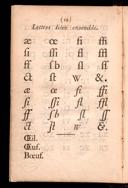 ( 12 )
Lettres liées ensemble.
æ œ fi ffi
ſi ſſi fl ffl
ff ſb ſl ſſ
ct ſt w &.
æ œ fi ffi
ſi ſſi fl ffl
ff ſb ſl ſſ
ct ſt w &.
Œil.
Œuf.
Bœuf.